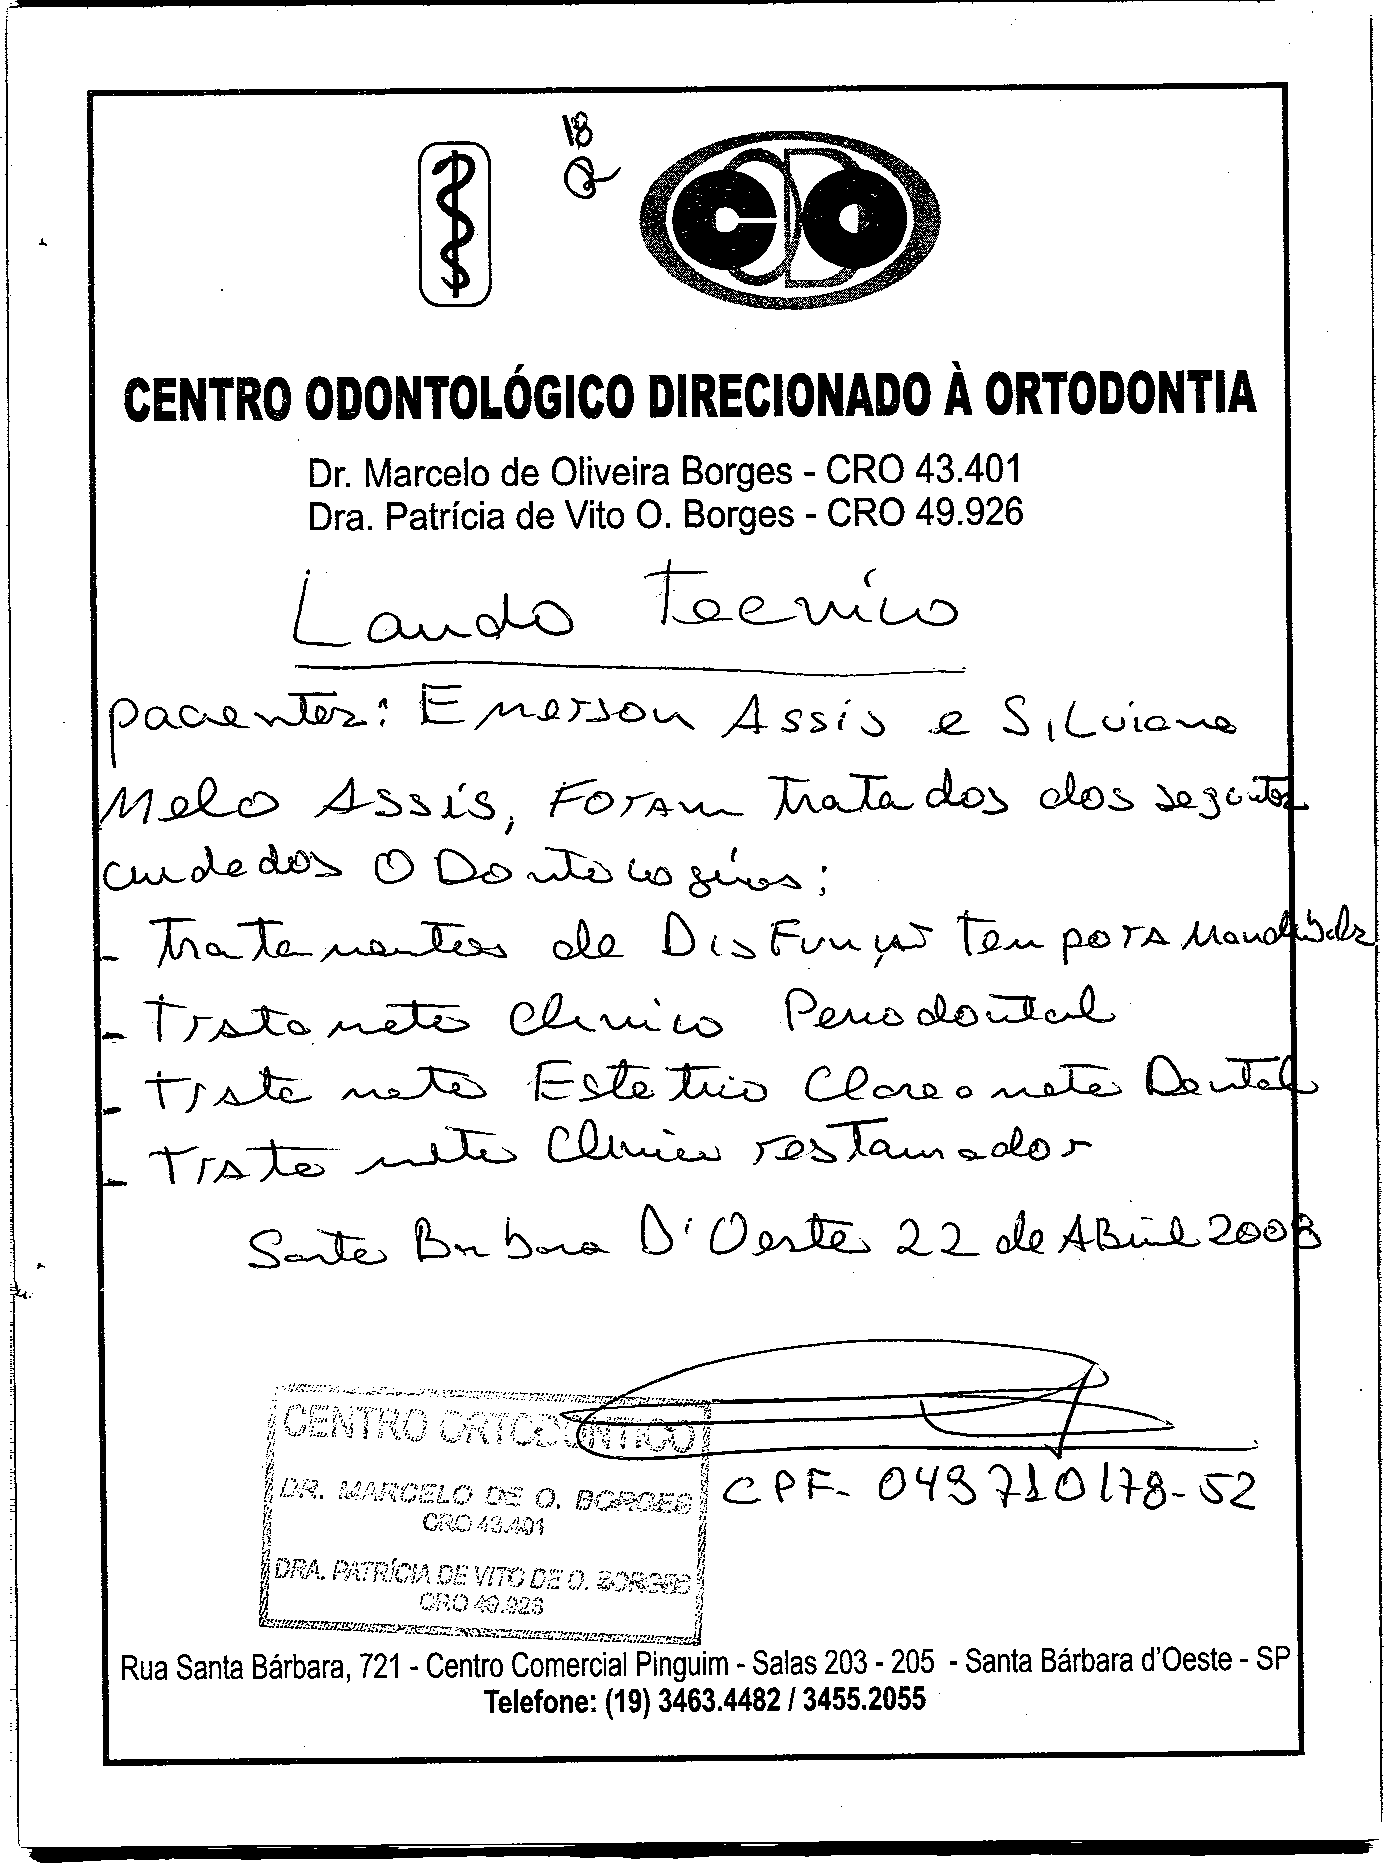 18
CDO
CENTRO ODONTOLÓGICO DIRECIONADO À ORTODONTIA
Dr. Marcelo de Oliveira Borges - CRO 43.401
Dra. Patrícia de Vito O. Borges - CRO 49.926
Laudo Tecnico
pacientes: Emerson Assis e Silviane
Melo Assis, Foram tratados dos seguintes
cuidados Odontologicos:
- Tratamentos de Disfunção temporamandibular
- Tratamento Clinico Periodontal
- Tratamento Estetico Clareamento Dental
- Tratamento Clinico restaurador
Santa Barbara D'Oeste 22 de Abril 2008
CENTRO ORTODÔNTICO
DR. MARCELO DE O. BORGES
CRO 43.401
DRA. PATRÍCIA DE VITO DE O. BORGES
CRO 49.926
CPF- 049710178-52
Rua Santa Bárbara, 721 - Centro Comercial Pinguim - Salas 203 - 205 - Santa Bárbara d'Oeste - SP
Telefone: (19) 3463.4482 / 3455.2055